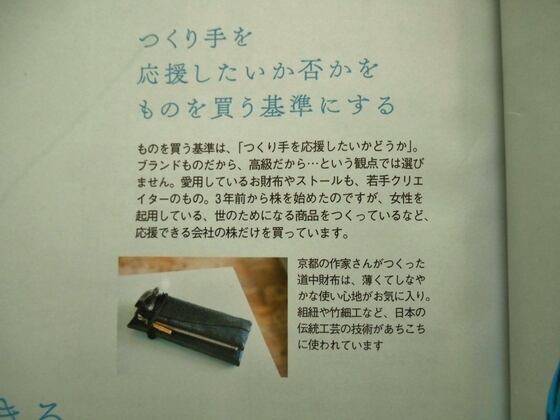 つくり手を
応援したいか否かを
ものを買う基準にする
ものを買う基準は、「つくり手を応援したいかどうか」。
ブランドものだから、高級だから…という観点では選び
ません。愛用しているお財布やストールも、若手クリエ
イターのもの。3年前から株を始めたのですが、女性を
起用している、世のためになる商品をつくっているなど、
応援できる会社の株だけを買っています。
京都の作家さんがつくった
道中財布は、薄くてしなや
かな使い心地がお気に入り。
組紐や竹細工など、日本の
伝統工芸の技術があちこち
に使われています
きる